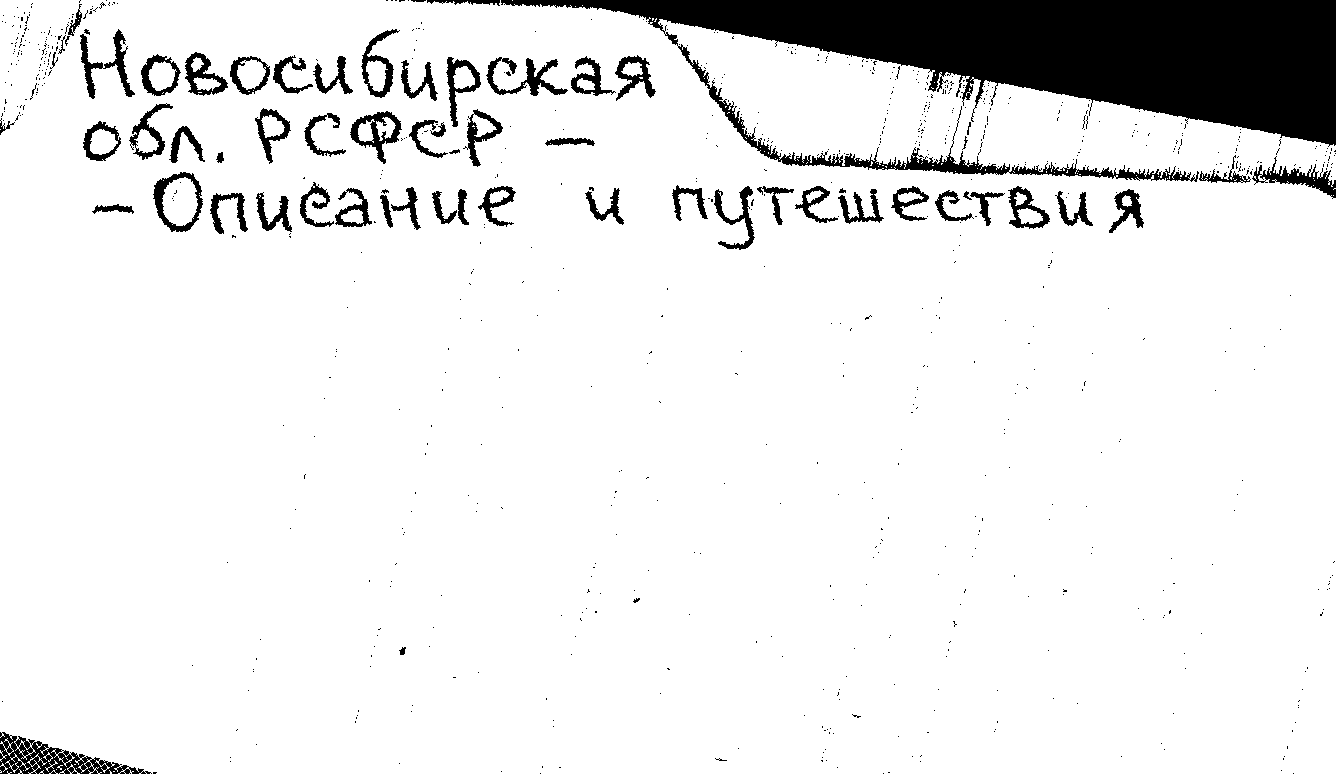 Новосибирская
обл. РСФСР –
– Описание и путешествия